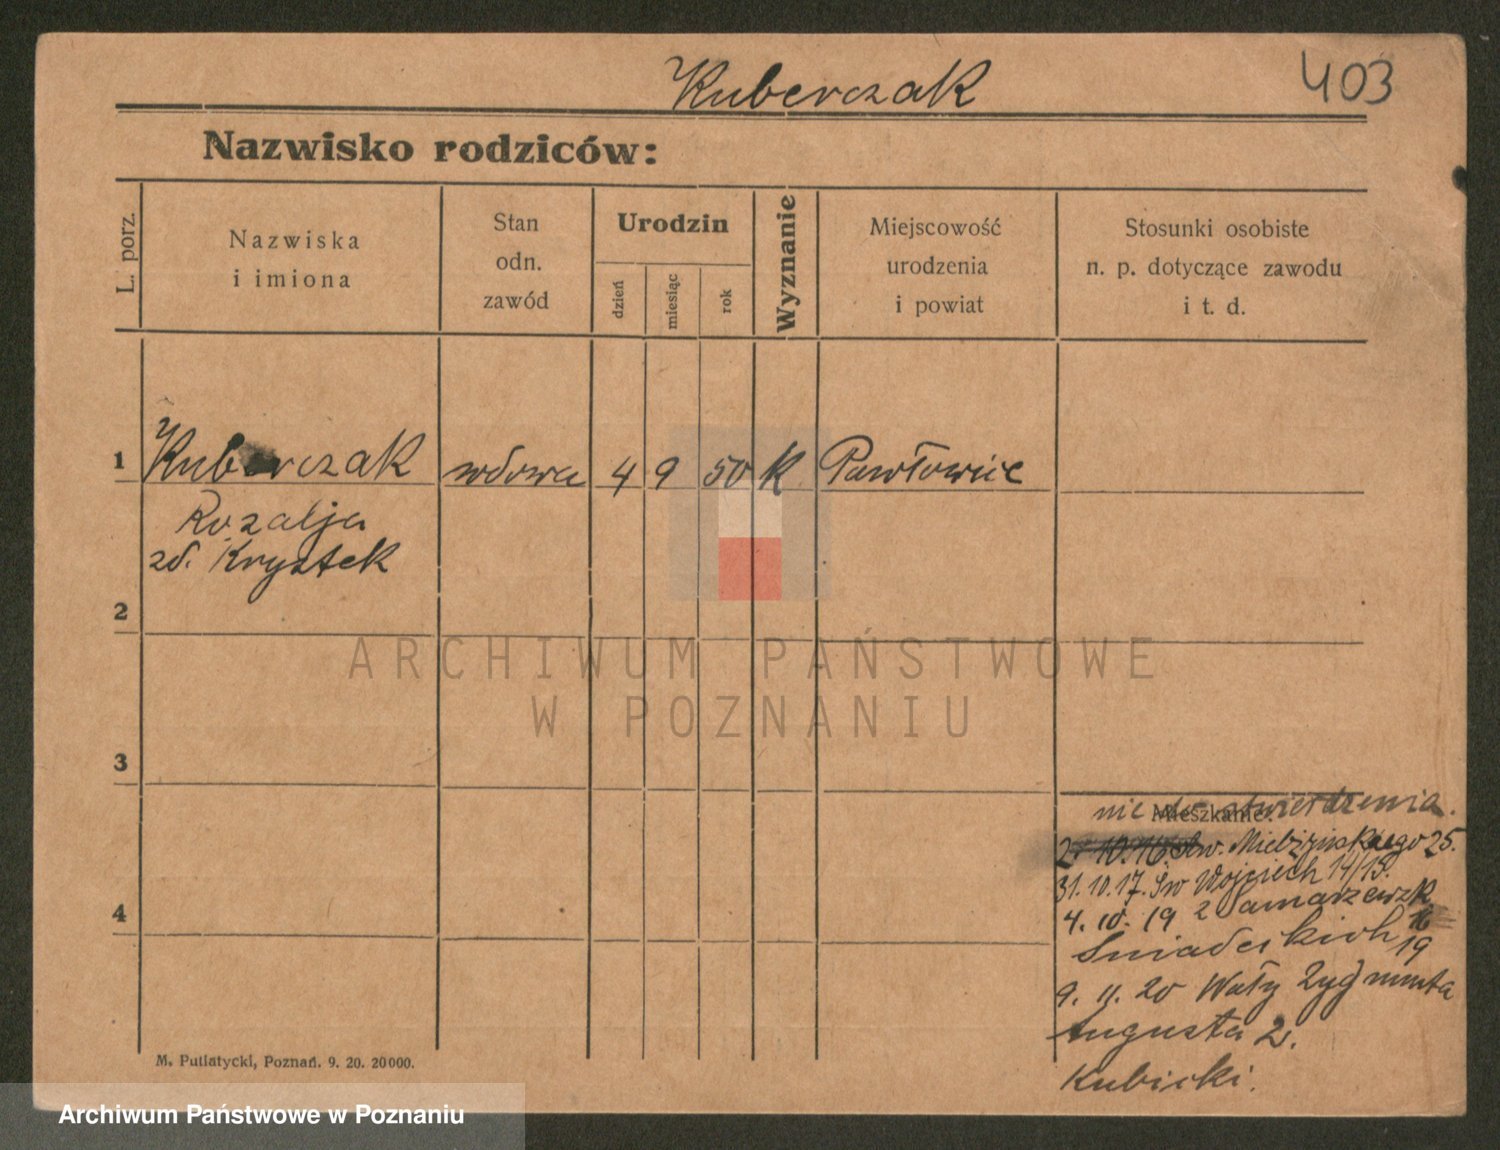 Kuberczak
403
Nazwisko rodziców:
L. porz.
Nazwiska
i imiona
Stan
odn.
zawód
Urodzin
dzień
miesiąc
rok
Wyznanie
Miejscowość
urodzenia
i powiat
Stosunki osobiste
n. p. dotyczące zawodu
i t. d.
1 Kuberczak wdowa 4 9 50 K Pawłowice
Rozalja
zd. Krystek
2
3
4
nie do stwierdzenia.
Mieszkanie:
10.16 św. Miełżyńskiego 25.
31.10.17. Św Wojciech 14/15.
4. 10. 19 z Samarzewsk.
Śniadeckich 19
9. 11. 20 Wały Zygmunta
Augusta 2.
Kubicki.
M. Putiatycki, Poznań. 9. 20. 20000.
ARCHIWUM PAŃSTWOWE
W POZNANIU
Archiwum Państwowe w Poznaniu